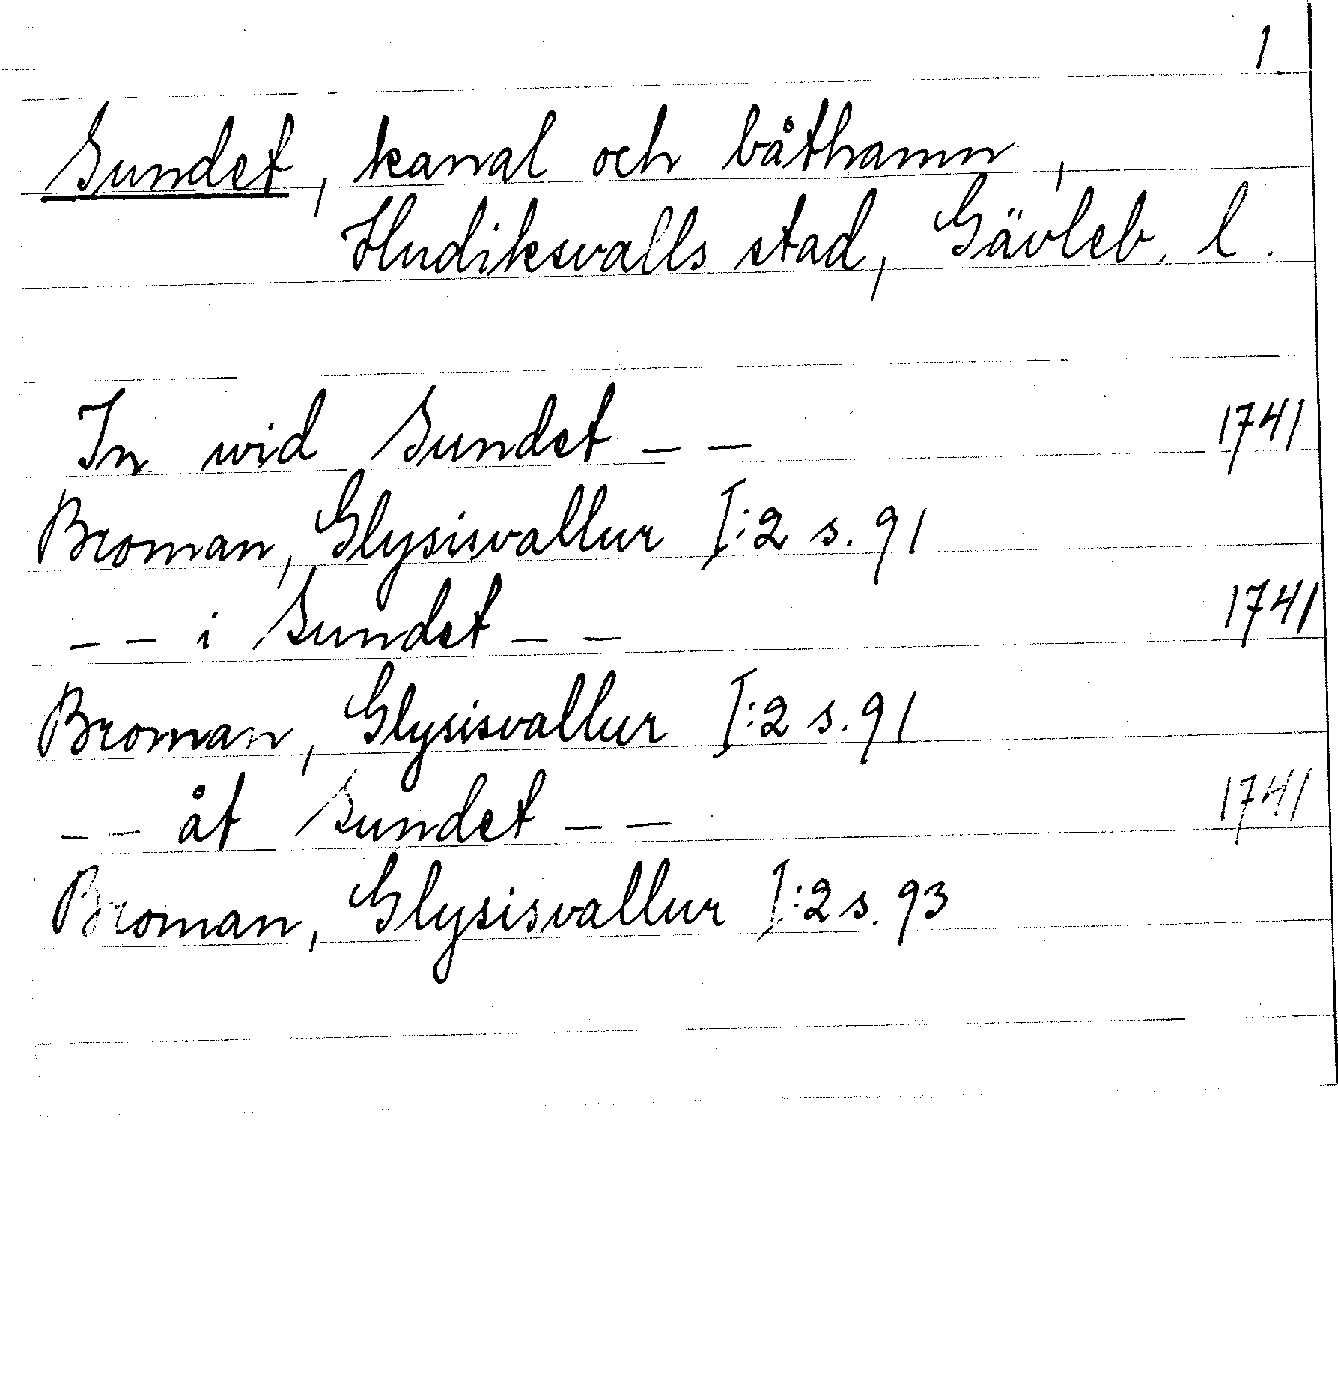 1
Sundet, kanal och båthamn,
Hudiksvalls stad, Gävleb. l.
In wid Sundet _ _ 1741
Broman, Glysisvallur I:2 s. 91
_ _ i Sundet _ _ 1741
Broman, Glysisvallur I:2 s. 91
_ _ åt Sundet _ _ 1741
Broman, Glysisvallur I:2 s. 93